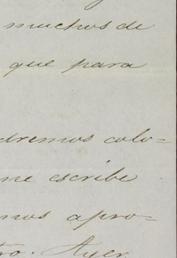 muchos de
que para
dremos colo=
me escribe
mos apro=
tro. Ayer